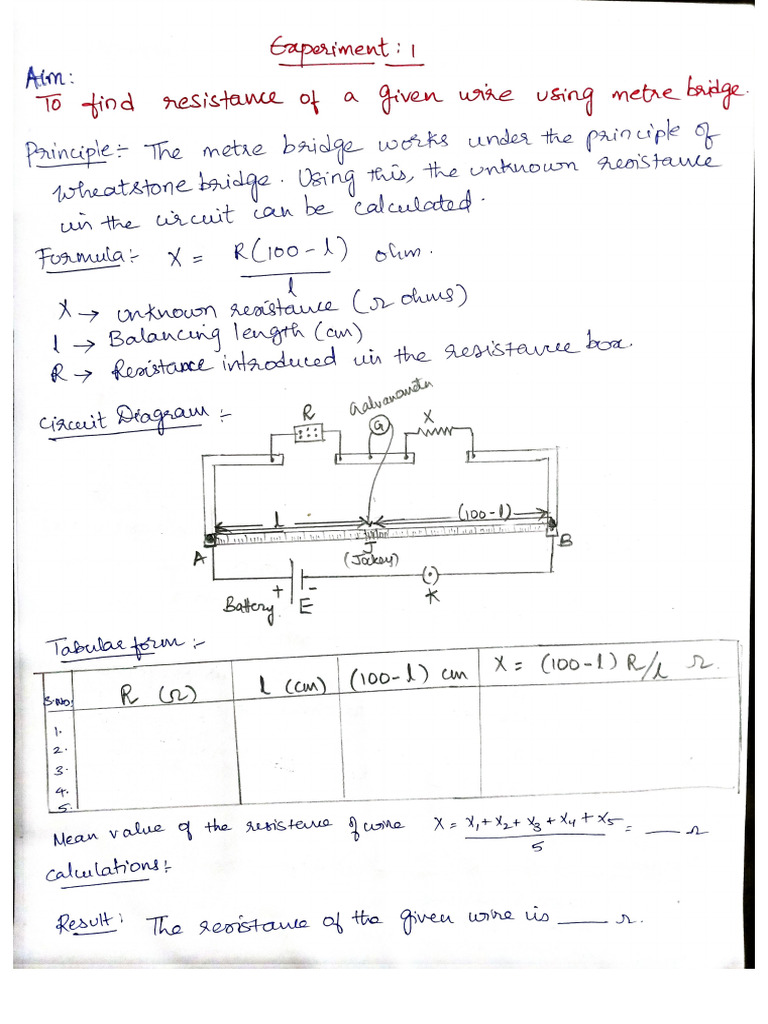 Experiment: 1
Aim:
To find resistance of a given wire using metre bridge.
Principle:- The metre bridge works under the principle of
wheatstone bridge. Using this, the unknown resistance
in the circuit can be calculated.
Formula:- X = R(100-l)/l ohm.
X → unknown resistance (Ω ohms)
l → Balancing length (cm)
R → Resistance introduced in the resistance box.
Circuit Diagram:-
R
Galvanometer
G
X
l
(100-l)
A
J
(Jockey)
B
Battery
+
E
-
K
Tabular form:-
S.No: R (Ω) l (cm) (100-l) cm X = (100-l) R/l Ω.
1.
2.
3.
4.
5.
Mean value of the resistance of wire X = X1+X2+X3+X4+X5/5 = ___ Ω
Calculations:-
Result: The resistance of the given wire is ___ Ω.